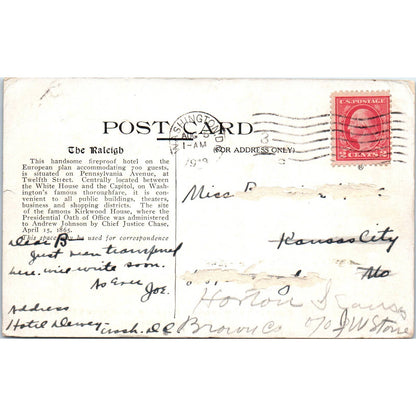 POST CARD
(FOR ADDRESS ONLY)
WASHINGTON, D
AUG
1-AM
U.S. POSTAGE
2 CENTS 2
The Raleigh
This handsome fireproof hotel on the
European plan accommodating 700 guests,
is situated on Pennsylvania Avenue, at
Twelfth Street. Centrally located between
the White House and the Capitol, on Wash-
ington's famous thoroughfare, it is con-
venient to all public buildings, theaters,
business and shopping districts. The site
of the famous Kirkwood House, where the
Presidential Oath of Office was administered
to Andrew Johnson by Chief Justice Chase,
April 15, 1865.
This space may be used for correspondence
Dear B—
Just been transferred
here. will write soon.
As Ever
Joe.
Address
Hotel Dewey
Wash. D.C.
Miss
Kansas City
Mo
Horton Kansas
Brown Co
c/o JW Stone